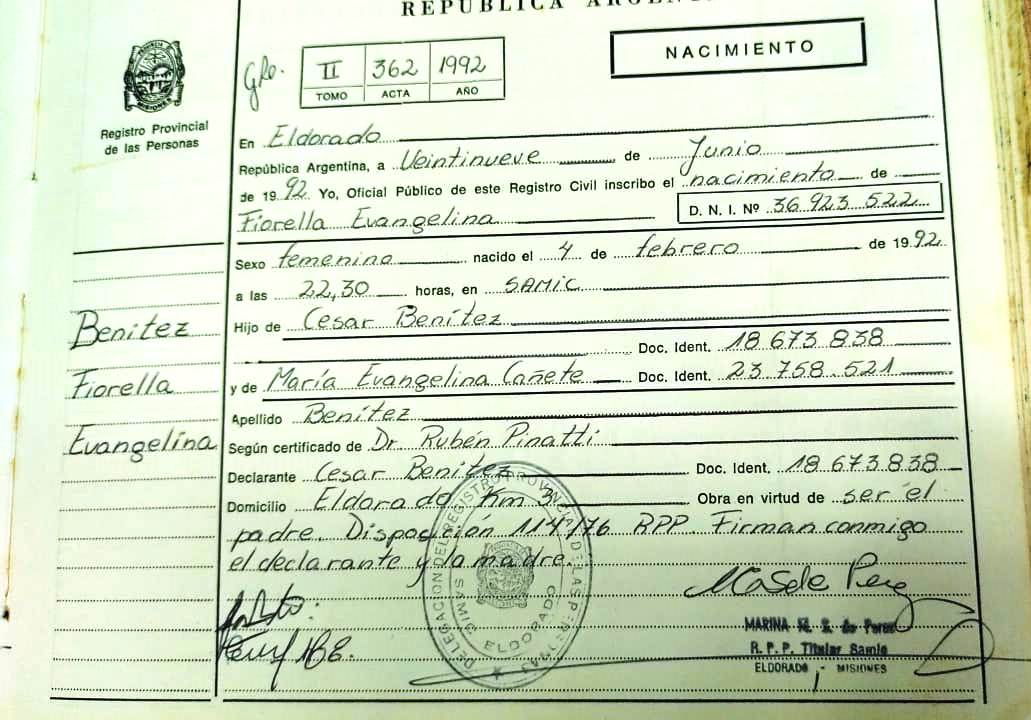 REPUBLICA
NACIMIENTO
Gfe. II 362 1992
TOMO ACTA AÑO
PROVINCIA MISIONES
Registro Provincial
de las Personas
En Eldorado
República Argentina, a Veintinueve de Junio
de 1992 Yo, Oficial Público de este Registro Civil inscribo el nacimiento de
Fiorella Evangelina D. N. I. Nº 36 923 522
Sexo femenino nacido el 4 de febrero de 1992
a las 22,30 horas, en SAMIC
Hijo de Cesar Benítez
Doc. Ident. 18 673 838
y de María Evangelina Cañete Doc. Ident. 23.758.521
Apellido Benítez
Según certificado de Dr Rubén Pinatti
Declarante Cesar Benítez Doc. Ident. 18 673838
Domicilio Eldorado Km 3 Obra en virtud de ser el
padre. Disposición 114/76 RPP. Firman conmigo
el declarante y la madre.
Benítez
Fiorella
Evangelina
DELEGACION DEL REGISTRO PROVINCIAL DE LAS PERSONAS
SAMIC ELDORADO
MARINA
R. P. P. Titular Samic
ELDORADO - MISIONES